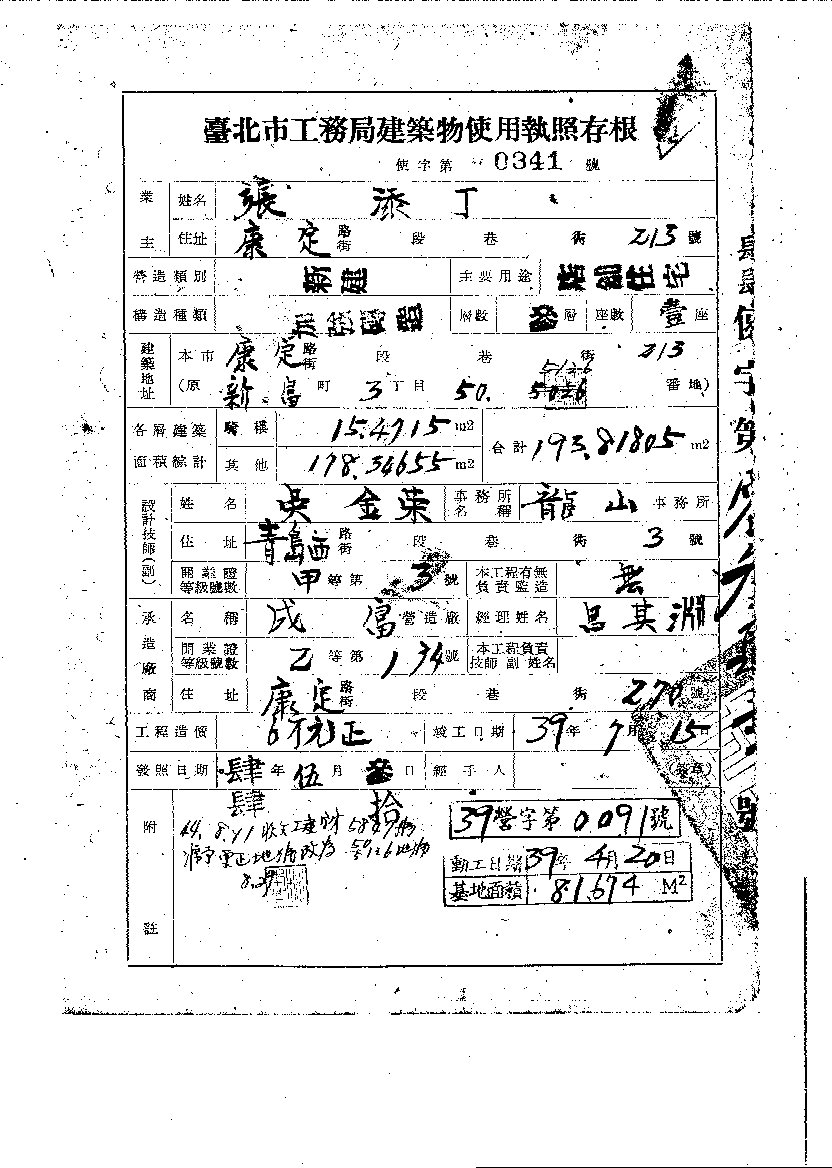 臺北市工務局建築物使用執照存根
使字第 0341 號
業主 姓名 張添丁
住址 康定 路街 段 巷 街 213 號
營造類別 新建 主要用途 店舖住宅
構造種類 加強磚造 層數 層 座數 壹 座
建築地址 本市 康定 路街 段 巷 街 213
(原 新富 町 3 丁目 50. 番地)
各層建築面積總計 騎樓 15.4715 m2 合計 193.81805 m2
其他 178.34655 m2
設計技師(副) 姓名 吳金榮 事務所名稱 龍山 事務所
住址 青島西 路街 段 巷 街 3 號
開業證等級號數 甲 等第 3 號 本工程有無負責監造 無
承造廠商 名稱 成富 營造廠 經理姓名 呂其淵
開業證等級號數 乙 等第 134 號 本工程負責技師副姓名
住址 康定 路街 段 巷 街 270 號
工程造價 竣工日期 39 年 7 月 15 日
發照日期 肆 年 伍 月 日 經手人 (簽章)
肆 拾
附註
39營字第0091號
動工日期 39年 4月 20日
基地面積 81.674 M2